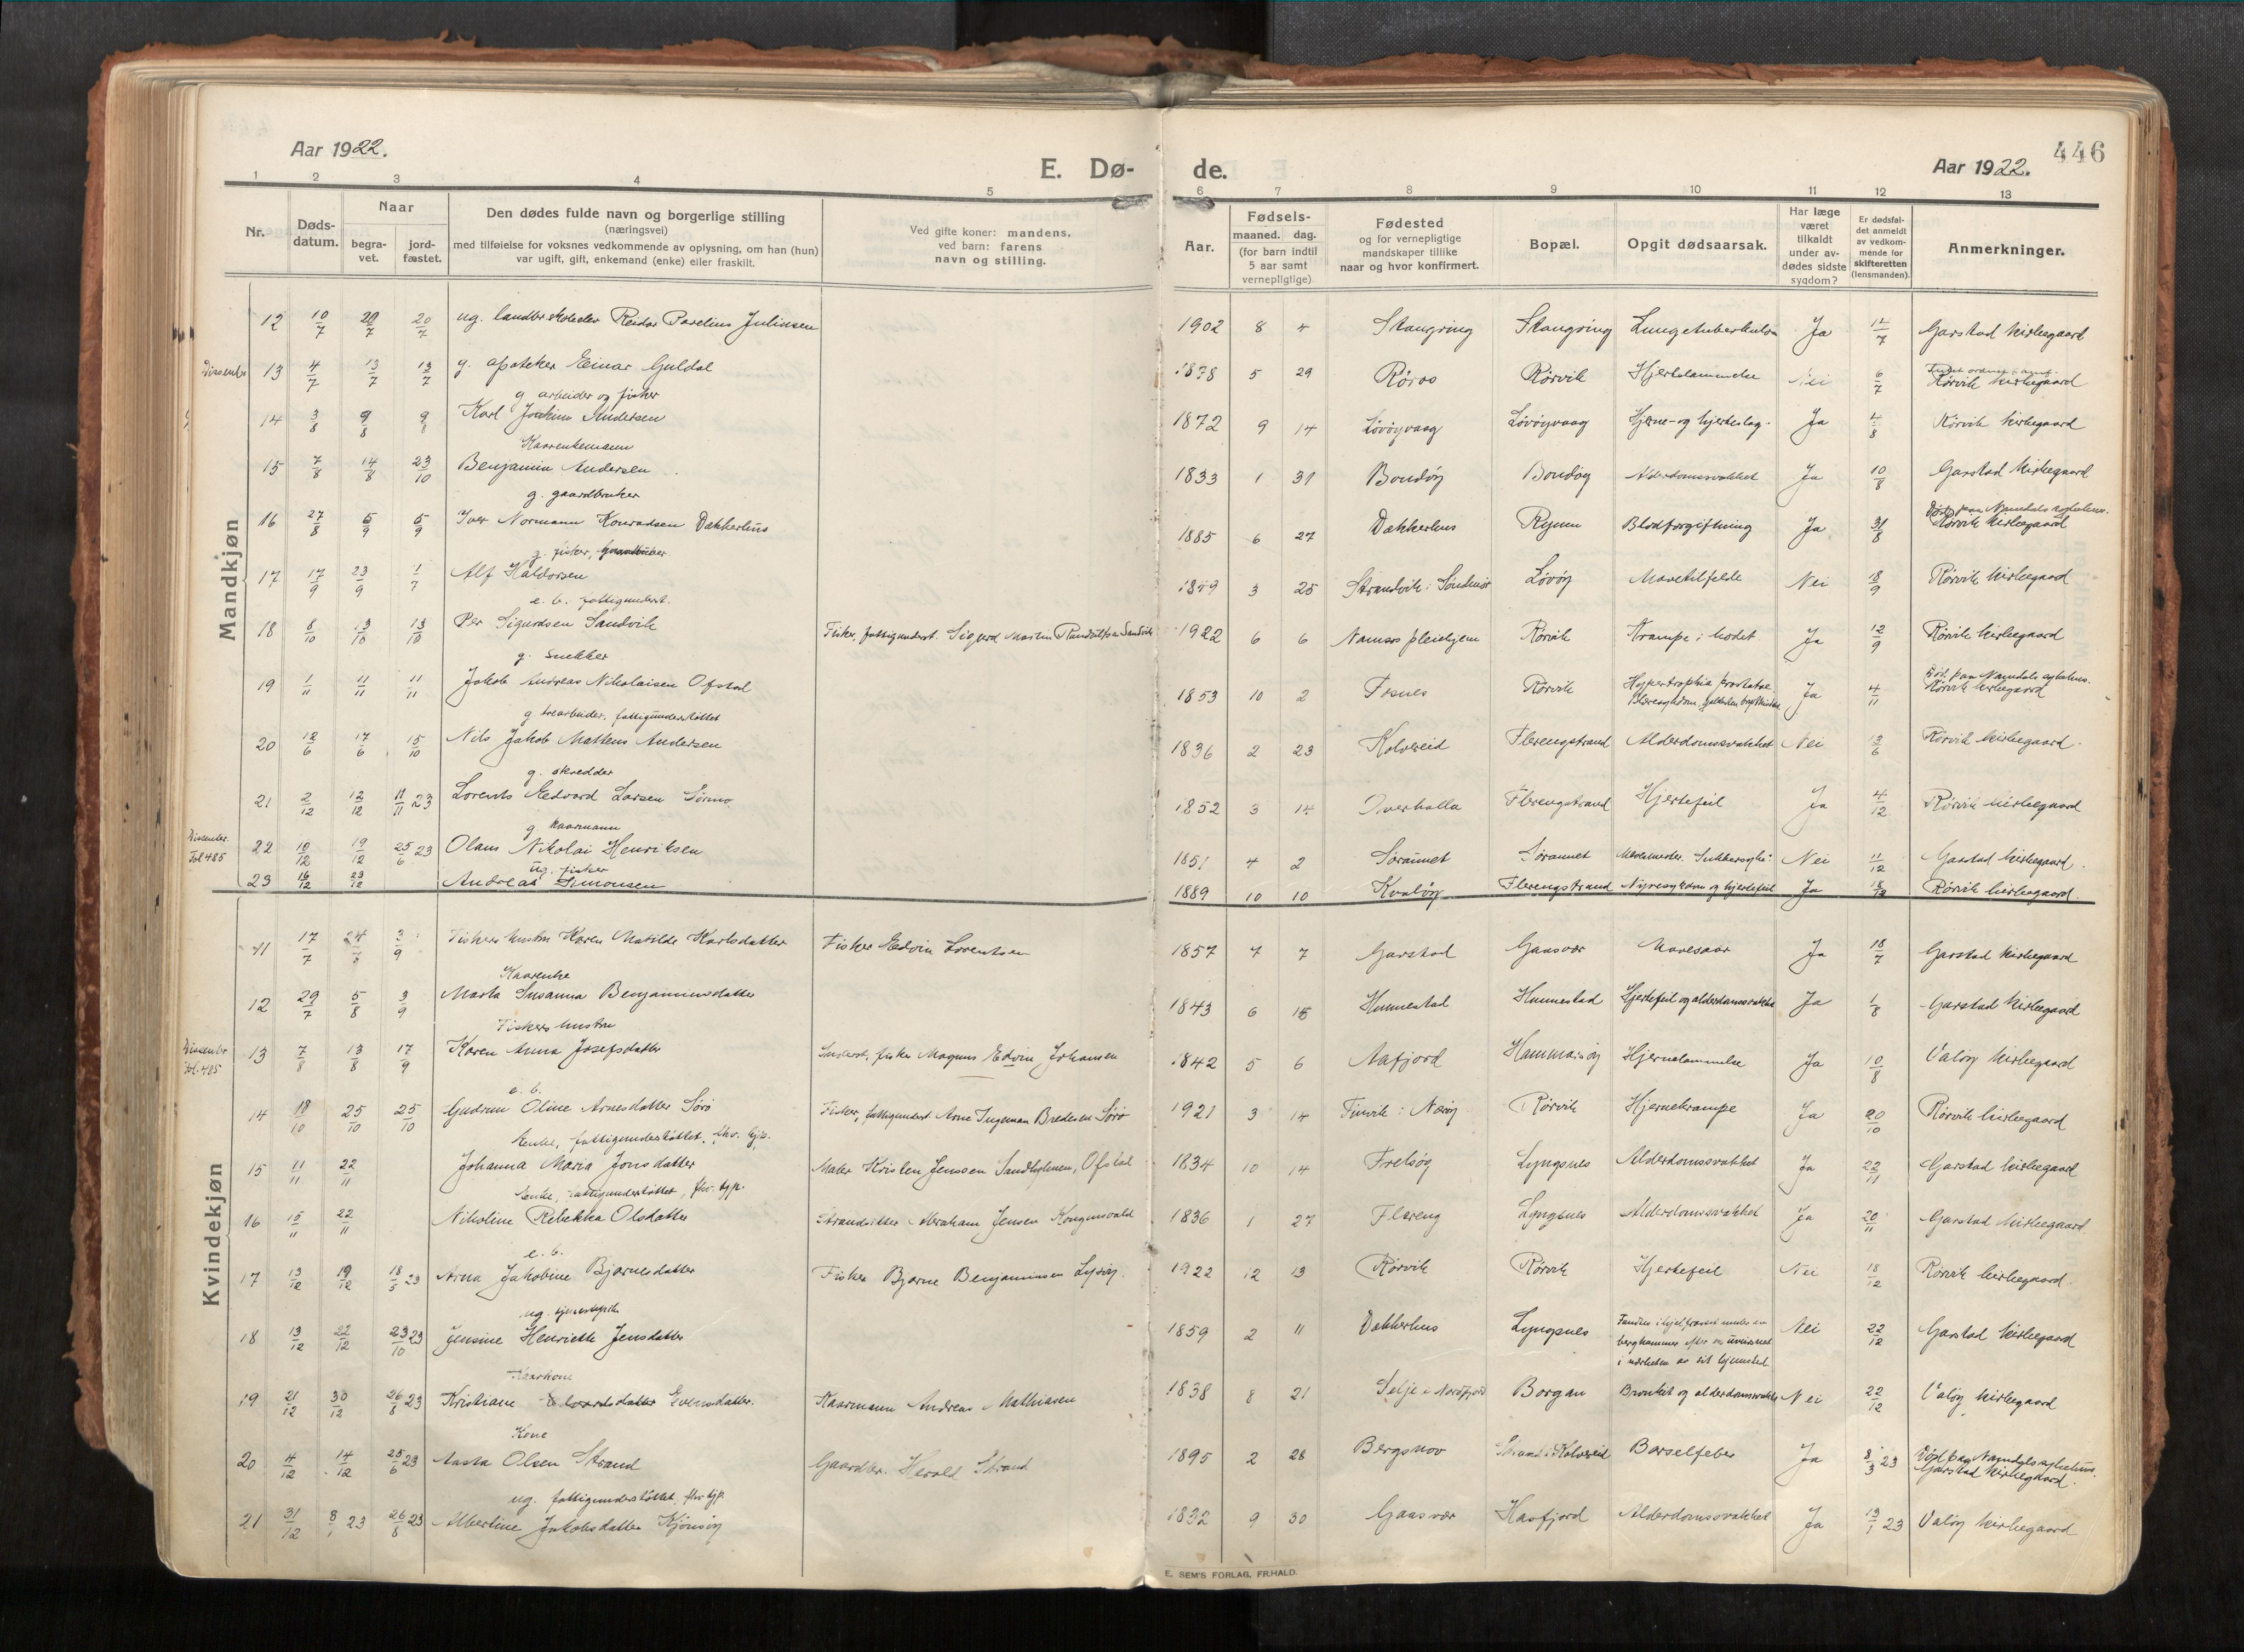 446
Aar 1922.
E. Dø- de.
Aar 1922.
1 2 3 4 5 6 7 8 9 10 11 12 13
Nr.
Døds-datum.
Naar
begra-vet.
jord-fæstet.
Den dødes fulde navn og borgerlige stilling
(næringsvei)
med tilføielse for voksnes vedkommende av oplysning, om han (hun)
var ugift, gift, enkemand (enke) eller fraskilt.
Ved gifte koner: mandens,
ved barn: farens
navn og stilling.
Aar.
Fødsels-
maaned. dag.
(for barn indtil
5 aar samt
vernepligtige)
Fødested
og for vernepligtige
mandskaper tillike
naar og hvor konfirmert.
Bopæl.
Opgit dødsaarsak.
Har læge
været
tilkaldt
under av-
dødes sidste
sygdom?
Er dødsfal-
det anmeldt
av vedkom-
mende for
skifteretten
(lensmanden).
Anmerkninger.
Mandkjøn
12 10/7 20/7 20/7 ug. landbr.skoleelev Reidar Parelius Julinsen 1902 8 4 Skangring Skangring Lungetuberkulose Ja 12/7 Garstad kirkegaard
Dissenter 13 4/7 13/7 13/7 g. apoteker Einar Guldal 1878 5 29 Røros Rørvik Hjertelammelse Nei 6/7 Rørvik kirkegaard
g. arbeider og fisker
14 3/8 9/8 9/8 Karl Joakim Andersen 1872 9 14 Løvøyvaag Løvøyvaag Hjerne- og hjerteslag. Ja 4/8 Rørvik kirkegaard
Kaarenkemann
15 7/8 14/8 23/10 Benjamin Andersen 1833 1 31 Bondøy Bondøy Alderdomssvakhet Ja 10/8 Garstad kirkegaard
g. gaardbruker
Død paa Namdals sykehus.
16 27/8 5/9 5/9 Iver Normann Konradsen Dakkerhus 1885 6 27 Dakkerhus Rynen Blodforgiftning Ja 31/8 Rørvik kirkegaard
g. fisker, gaardbruker
17 17/9 23/9 1/7 Alf Haldorsen 1849 3 25 Strandvik i Søndmør Løvøy Mavetilfelde Nei 18/9 Rørvik kirkegaard
e. b. fattigunderst.
18 8/10 13/10 13/10 Per Sigurdsen Sandvik Fisker, fattigunderst. Sigurd Martin Randulfsen Sandvik 1922 6 6 Namsos pleiehjem Rørvik Krampe i hodet Ja 12/9 Rørvik kirkegaard
g. Snekker
Død paa Namdals sykehus.
19 1/11 11/11 11/11 Jakob Andreas Nikolaisen Ofstad 1853 10 2 Fosnes Rørvik Hypertrophia prostatae Ja 4/11 Rørvik kirkegaard
g. trearbeider, fattigunderstøttet
20 12/6 17/6 15/10 Nils Jakob Mattens Andersen 1836 2 23 Kolvereid Flerengstrand Alderdomssvakhet Nei 13/6 Rørvik kirkegaard.
g. skredder
21 2/12 12/12 11/11 23 Lorents Edvard Larsen Sørmo 1852 3 14 Overhalla Flerengstrand Hjertefeil Ja 4/12 Rørvik kirkegaard
g. kaarmann
Dissenter. Fol 485 22 10/12 19/12 25/6 23 Olaus Nikolai Henriksen 1851 4 2 Søraunet Søraunet Nei 11/12 Garstad kirkegaard.
ug. fisker
23 16/12 23/12 Andreas Simonsen 1889 10 10 Kvaløy Flerengstrand Nyresykdom og hjertefeil Ja 18/12 Rørvik kirkegaard.
Kvindekjøn
11 17/7 24/7 3/9 Fiskers hustru Karen Matilde Karlsdatter Fisker Edvin Lorentsen 1857 7 7 Garstad Gaasvær Mavesaar Ja 18/7 Garstad kirkegaard
Kaarenke
12 29/7 5/8 3/9 Marta Susanna Benjaminsdatter 1843 6 15 Hunnestad Hunnestad Hjertefeil og alderdomssvakhet Ja 1/8 Garstad kirkegaard
Fiskers hustru
Dissenter fol. 485 13 7/8 13/8 17/9 Karen Anna Josefsdatter Underst. fisker Magnus Edvin Johansen 1842 5 6 Aafjord Hammarøy Hjernelammelse Ja 10/8 Valøy kirkegaard
e. b.
14 18/10 25/10 25/10 Gudrun Oline Arnesdatter Sørø Fisker, fattigunderst. Arne Ingeman Bredesen Sørø 1921 3 14 Finvik i Nærøy Rørvik Hjernekrampe Ja 20/10 Rørvik kirkegaard
Enke, fattigunderstøttet, fhv. tjp.
15 11/11 22/11 Johanna Maria Jonsdatter Maler Kristen Jenssen Sandholmen, Ofstad 1834 10 14 Fretsøy Lyngsnes Alderdomssvakhet Ja 22/11 Garstad kirkegaard
Enke, fattigunderstøttet, fhv. tjp.
16 15/11 22/11 Nikoline Rebekka Olsdatter Strandsitter Abraham Jensen Kongensvold 1836 1 27 Flereng Lyngsnes Alderdomssvakhet Ja 20/11 Garstad kirkegaard.
e. b.
17 13/12 19/12 18/5 23 Arna Jakobine Bjarnesdatter Fisker Bjarne Benjaminsen Lysøy. 1922 12 13 Rørvik Rørvik Hjertefeil Nei 18/12 Rørvik kirkegaard.
ug. tjenestepike
18 13/12 22/12 23/10 23 Jensine Henriette Jensdatter 1859 2 11 Dakkerhus Lyngsnes Funden ihjelfrosset under en Nei 22/12 Garstad kirkegaard
berghammer efter en uveirsnat
i nærheten av sit hjemsted
Kaarkone
19 21/12 30/12 26/8 23 Kristiane Evensdatter. Kaarmann Andreas Mathiasen 1838 8 21 Selje i Nordfjord Borgan Bronkit og alderdomssvakhet Nei 22/12 Valøy kirkegaard
Kone
20 4/12 14/12 25/6 23 Aasta Olsen Strand Gaardbr. Herold Strand 1895 2 28 Bergsnov Strand i Kolvereid Barselfeber Ja 8/3 23 Død paa Namdals sykehus.
Garstad kirkegaard.
ug. fattigunderstøttet, fhv. tjp.
21 31/12 8/1 23 26/8 23 Albertine Jakobsdatter Kjønsøy 1832 9 30 Gaasvær Hasfjord Alderdomssvakhet Ja 13/1 23 Valøy kirkegaard
E. SEM'S FORLAG, FR.HALD.